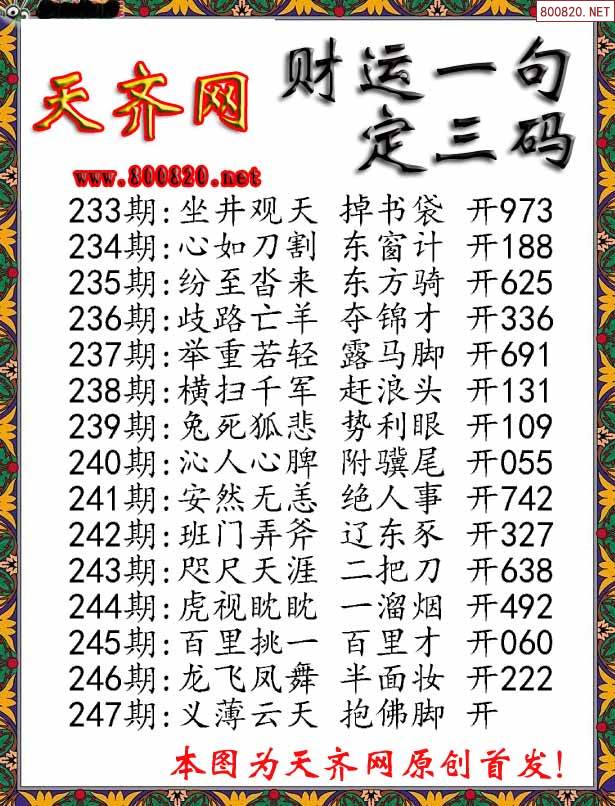 800820.NET
财运一句
天齐网
定三码
www.800820.net
233期:坐井观天 掉书袋 开973
234期:心如刀割 东窗计 开188
235期:纷至沓来 东方骑 开625
236期:歧路亡羊 夺锦才 开336
237期:举重若轻 露马脚 开691
238期:横扫千军 赶浪头 开131
239期:兔死狐悲 势利眼 开109
240期:沁人心脾 附骥尾 开055
241期:安然无恙 绝人事 开742
242期:班门弄斧 辽东豕 开327
243期:咫尺天涯 二把刀 开638
244期:虎视眈眈 一溜烟 开492
245期:百里挑一 百里才 开060
246期:龙飞凤舞 半面妆 开222
247期:义薄云天 抱佛脚 开
本图为天齐网原创首发!